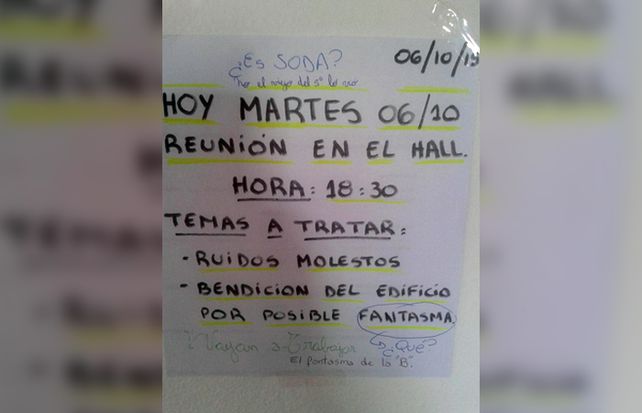 ¿Es SODA?
06/10/15
No el viejo del 5° lo vió
HOY MARTES 06/10
REUNIÓN EN EL HALL.
HORA: 18:30
TEMAS A TRATAR:
- RUIDOS MOLESTOS
- BENDICION DEL EDIFICIO
POR POSIBLE FANTASMA
¿Qué?
Vayan a Trabajar
El fantasma de la "B".